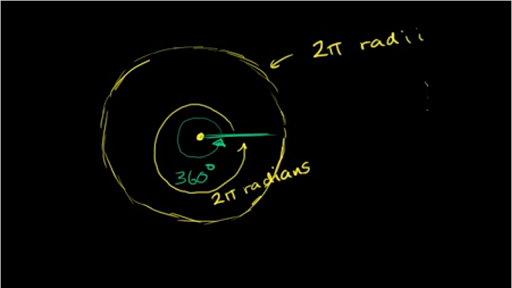 2π radii
360°
2π radians